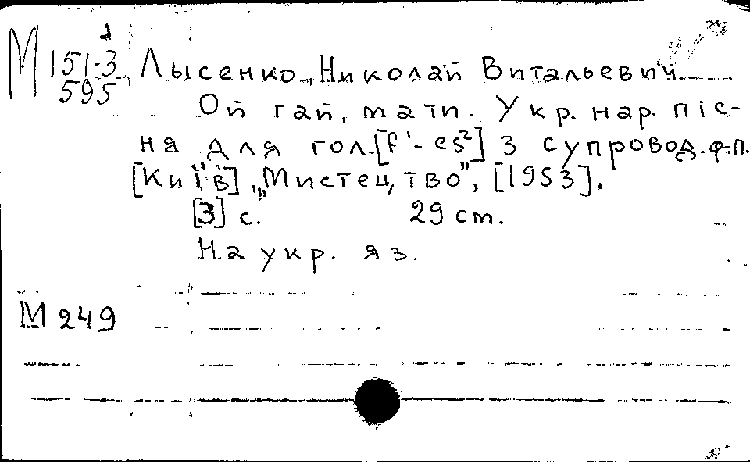 М 151-3
595
Лысенко, Николай Витальевич
Ой гай, мати. Укр. нар. піс-
ня для гол. [f'- es²] з супровод. ф.-п.
[Київ] „Мистецтво", [1953].
[3] с. 29 cm.
На укр. яз.
М 249